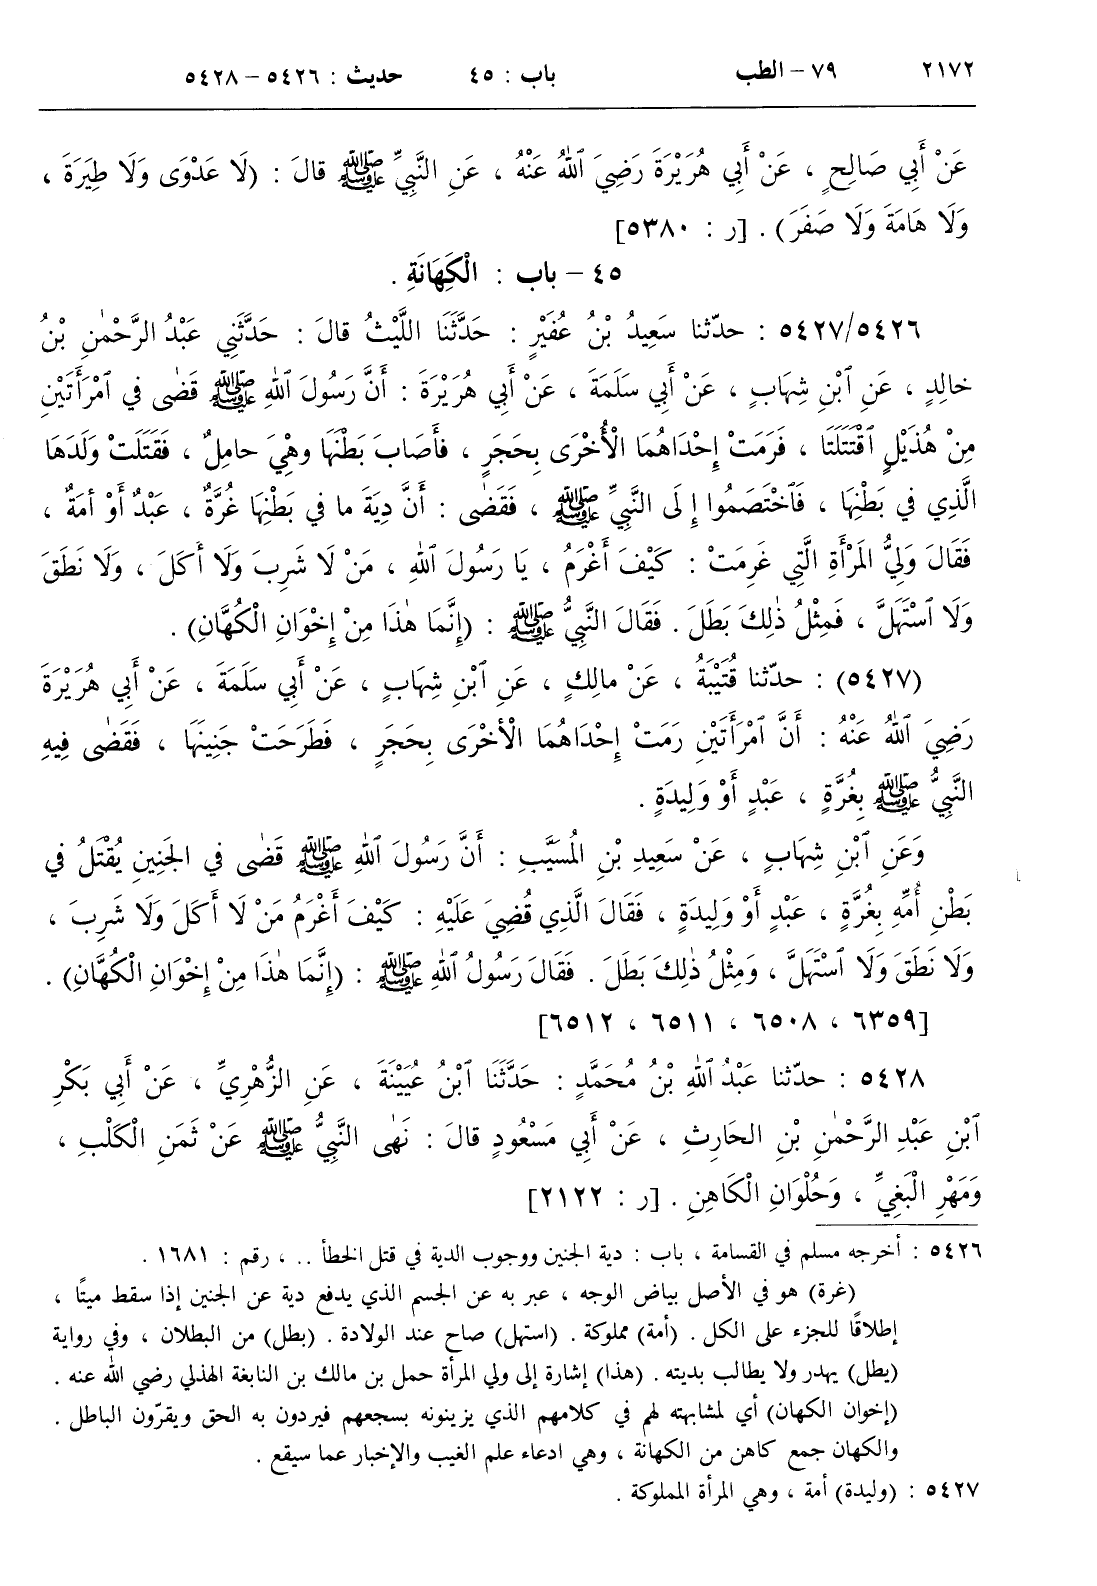 ٢١٧٢ ٧٩ – الطب باب : ٤٥ حديث : ٥٤٢٦ – ٥٤٢٨
عَنْ أَبِي صَالِحٍ ، عَنْ أَبِي هُرَيْرَةَ رَضِيَ ٱللهُ عَنْهُ ، عَنِ النَّبِيِّ ﷺ قالَ : (لَا عَدْوَى وَلَا طِيَرَةَ ،
وَلَا هَامَةَ وَلَا صَفَرَ) . [ر : ٥٣٨٠]
٤٥ – باب : الْكِهَانَةِ .
٥٤٢٧/٥٤٢٦ : حدّثنا سَعِيدُ بْنُ عُفَيْرٍ : حَدَّثَنَا اللَّيْثُ قالَ : حَدَّثَنِي عَبْدُ الرَّحْمٰنِ بْنُ
خالِدٍ ، عَنِ ٱبْنِ شِهَابٍ ، عَنْ أَبِي سَلَمَةَ ، عَنْ أَبِي هُرَيْرَةَ : أَنَّ رَسُولَ ٱللهِ ﷺ قَضٰى في ٱمْرَأَتَيْنِ
مِنْ هُذَيْلٍ ٱقْتَتَلَتَا ، فَرَمَتْ إِحْدَاهُمَا الْأُخْرَى بِحَجَرٍ ، فَأَصَابَ بَطْنَهَا وهْيَ حامِلٌ ، فَقَتَلَتْ وَلَدَهَا
الَّذِي في بَطْنِهَا ، فَٱخْتَصَمُوا إِلَى النَّبِيِّ ﷺ ، فَقَضٰى : أَنَّ دِيَةَ ما في بَطْنِهَا غُرَّةٌ ، عَبْدٌ أَوْ أَمَةٌ ،
فَقَالَ وَلِيُّ المَرْأَةِ الَّتِي غَرِمَتْ : كَيْفَ أَغْرَمُ ، يَا رَسُولَ ٱللهِ ، مَنْ لَا شَرِبَ وَلَا أَكَلَ ، وَلَا نَطَقَ
وَلَا ٱسْتَهَلَّ ، فَمِثْلُ ذٰلِكَ بَطَلَ . فَقَالَ النَّبِيُّ ﷺ : (إِنَّمَا هٰذَا مِنْ إِخْوَانِ الْكُهَّانِ) .
(٥٤٢٧) : حدّثنا قُتَيْبَةُ ، عَنْ مالِكٍ ، عَنِ ٱبْنِ شِهَابٍ ، عَنْ أَبِي سَلَمَةَ ، عَنْ أَبِي هُرَيْرَةَ
رَضِيَ ٱللهُ عَنْهُ : أَنَّ ٱمْرَأَتَيْنِ رَمَتْ إِحْدَاهُمَا الْأُخْرَى بِحَجَرٍ ، فَطَرَحَتْ جَنِينَهَا ، فَقَضٰى فِيهِ
النَّبِيُّ ﷺ بِغُرَّةٍ ، عَبْدٍ أَوْ وَلِيدَةٍ .
وَعَنِ ٱبْنِ شِهَابٍ ، عَنْ سَعِيدِ بْنِ المُسَيَّبِ : أَنَّ رَسُولَ ٱللهِ ﷺ قَضٰى في الجَنِينِ يُقْتَلُ في
بَطْنِ أُمِّهِ بِغُرَّةٍ ، عَبْدٍ أَوْ وَلِيدَةٍ ، فَقَالَ الَّذِي قُضِيَ عَلَيْهِ : كَيْفَ أَغْرَمُ مَنْ لَا أَكَلَ وَلَا شَرِبَ ،
وَلَا نَطَقَ وَلَا ٱسْتَهَلَّ ، وَمِثْلُ ذٰلِكَ بَطَلَ . فَقَالَ رَسُولُ ٱللهِ ﷺ : (إِنَّمَا هٰذَا مِنْ إِخْوَانِ الْكُهَّانِ) .
[٦٣٥٩ ، ٦٥٠٨ ، ٦٥١١ ، ٦٥١٢]
٥٤٢٨ : حدّثنا عَبْدُ ٱللهِ بْنُ مُحَمَّدٍ : حَدَّثَنَا ٱبْنُ عُيَيْنَةَ ، عَنِ الزُّهْرِيِّ ، عَنْ أَبِي بَكْرِ
ٱبْنِ عَبْدِ الرَّحْمٰنِ بْنِ الحَارِثِ ، عَنْ أَبِي مَسْعُودٍ قالَ : نَهٰى النَّبِيُّ ﷺ عَنْ ثَمَنِ الْكَلْبِ ،
وَمَهْرِ الْبَغِيِّ ، وَحُلْوَانِ الْكَاهِنِ . [ر : ٢١٢٢]
٥٤٢٦ : أخرجه مسلم في القسامة ، باب : دية الجنين ووجوب الدية في قتل الخطأ .. ، رقم : ١٦٨١ .
(غرة) هو في الأصل بياض الوجه ، عبر به عن الجسم الذي يدفع دية عن الجنين إذا سقط ميتًا ،
إطلاقًا للجزء على الكل . (أمة) مملوكة . (استهل) صاح عند الولادة . (بطل) من البطلان ، وفي رواية
(يطل) يهدر ولا يطالب بديته . (هذا) إشارة إلى ولي المرأة حمل بن مالك بن النابغة الهذلي رضي الله عنه .
(إخوان الكهان) أي لمشابهته لهم في كلامهم الذي يزينونه بسجعهم فيردون به الحق ويقرّون الباطل .
والكهان جمع كاهن من الكهانة ، وهي ادعاء علم الغيب والإخبار عما سيقع .
٥٤٢٧ : (وليدة) أمة ، وهي المرأة المملوكة .